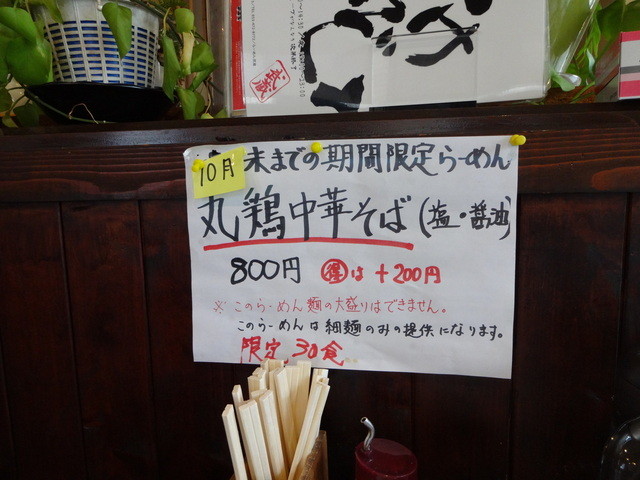 10月
末までの期間限定らーめん
丸鶏中華そば(塩・醤油)
800円 ㊕は+200円
※このらーめん麺の大盛りはできません。
このらーめんは細麺のみの提供になります。
限定30食
武蔵